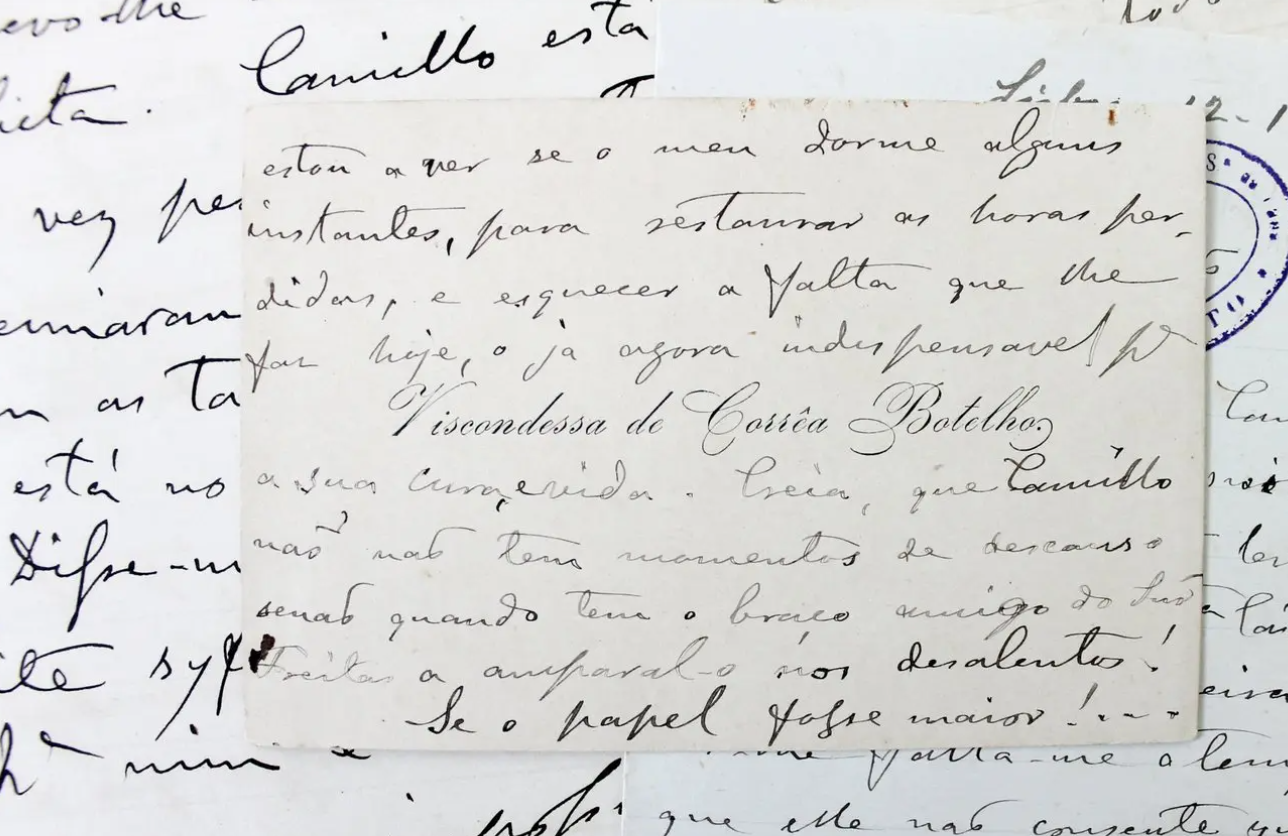 evo-lhe
Camillo está
vez
está no
estou a ver se o meu dorme alguns
instantes, para restaurar as horas per-
didas, e esquecer a falta que lhe
faz hoje, o já agora indispensavel pª
Viscondessa de Corrêa Botelho
a sua cura, e vida. Creia, que Camillo
não não tem momentos de descanso
senão quando tem o braço amigo do Snr
Freitas a amparal-o nos desalentos!
Se o papel fosse maior!...
pª mim e
falta-me o tem
que elle não consente